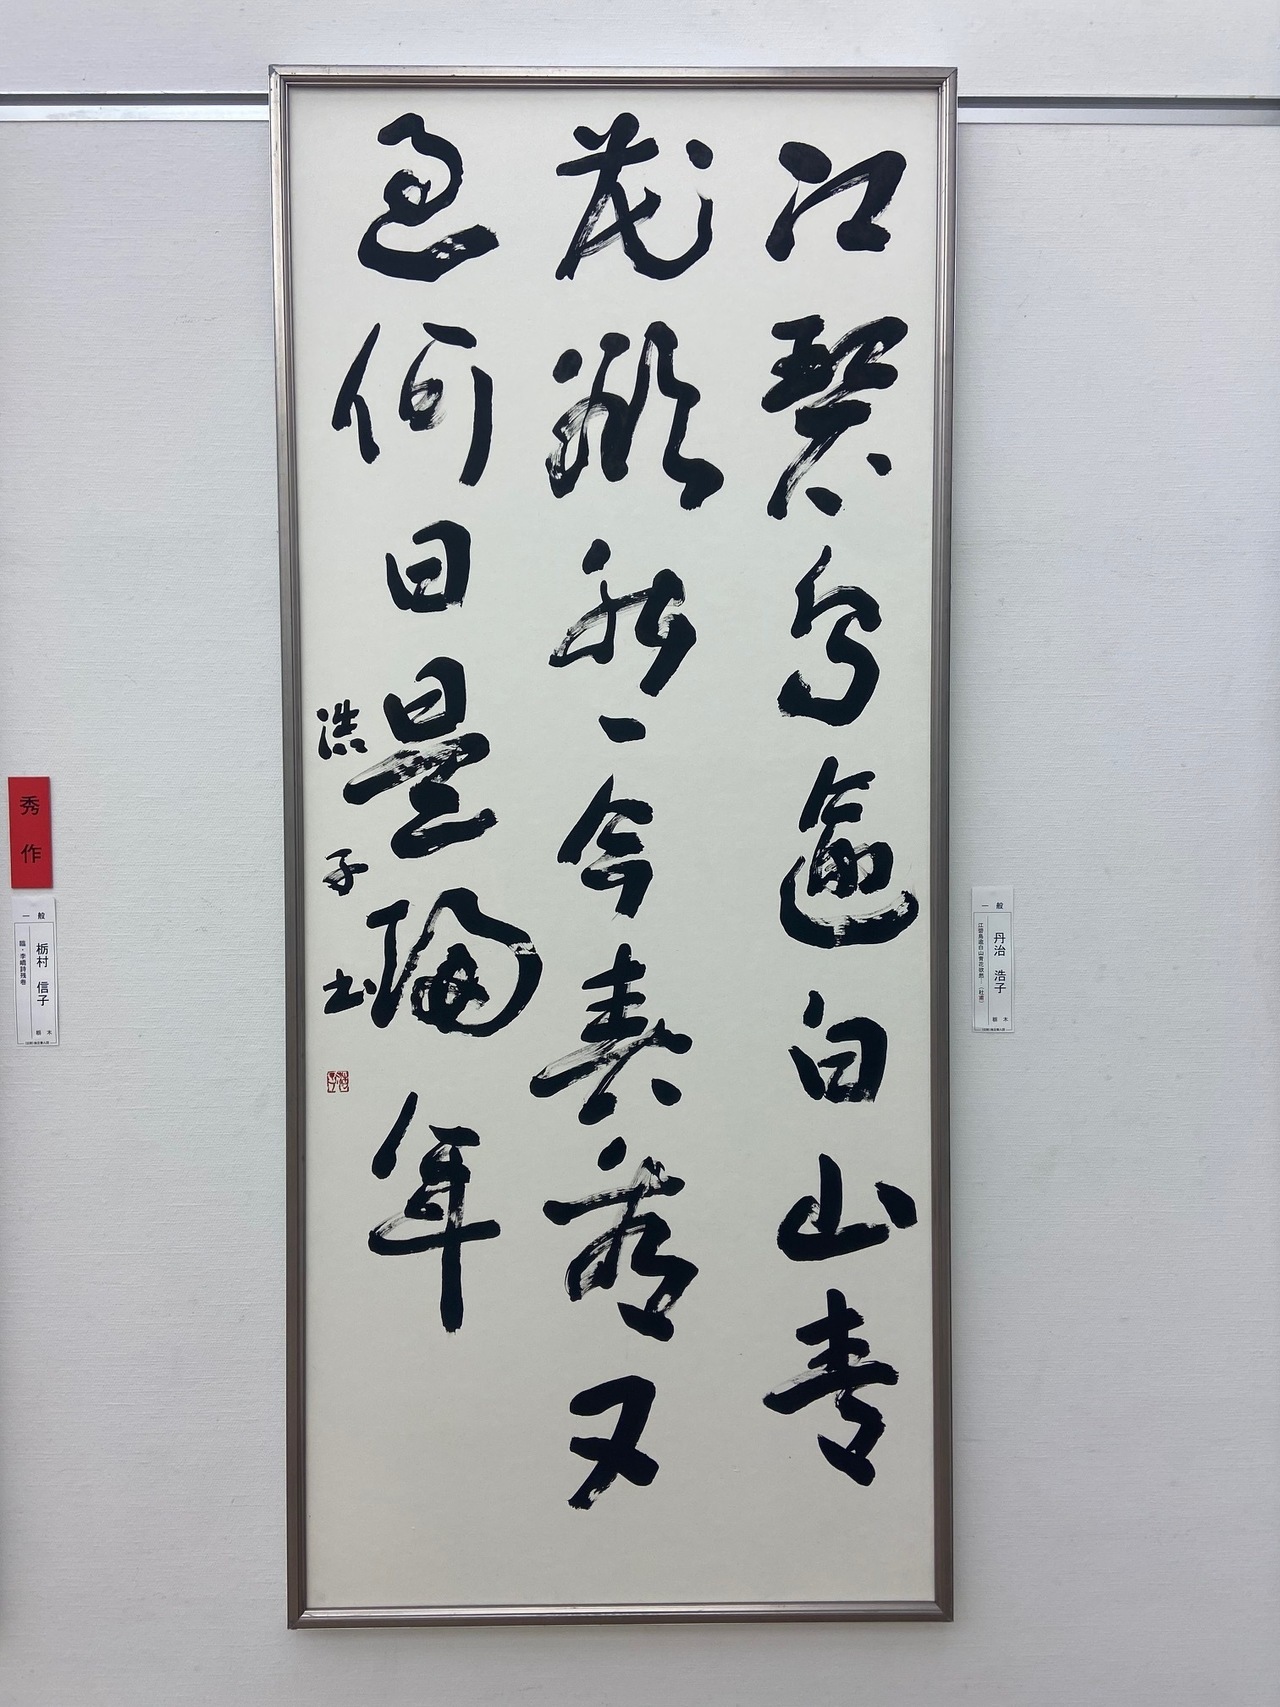 江碧鳥逾白山青
花欲然今春看又
過何日是歸年
浩子書
一般
丹治 浩子
江碧鳥逾白山青花欲然…(杜甫)
栃木
秀作
一般
栃村 信子
臨・李嶠詩残巻
栃木